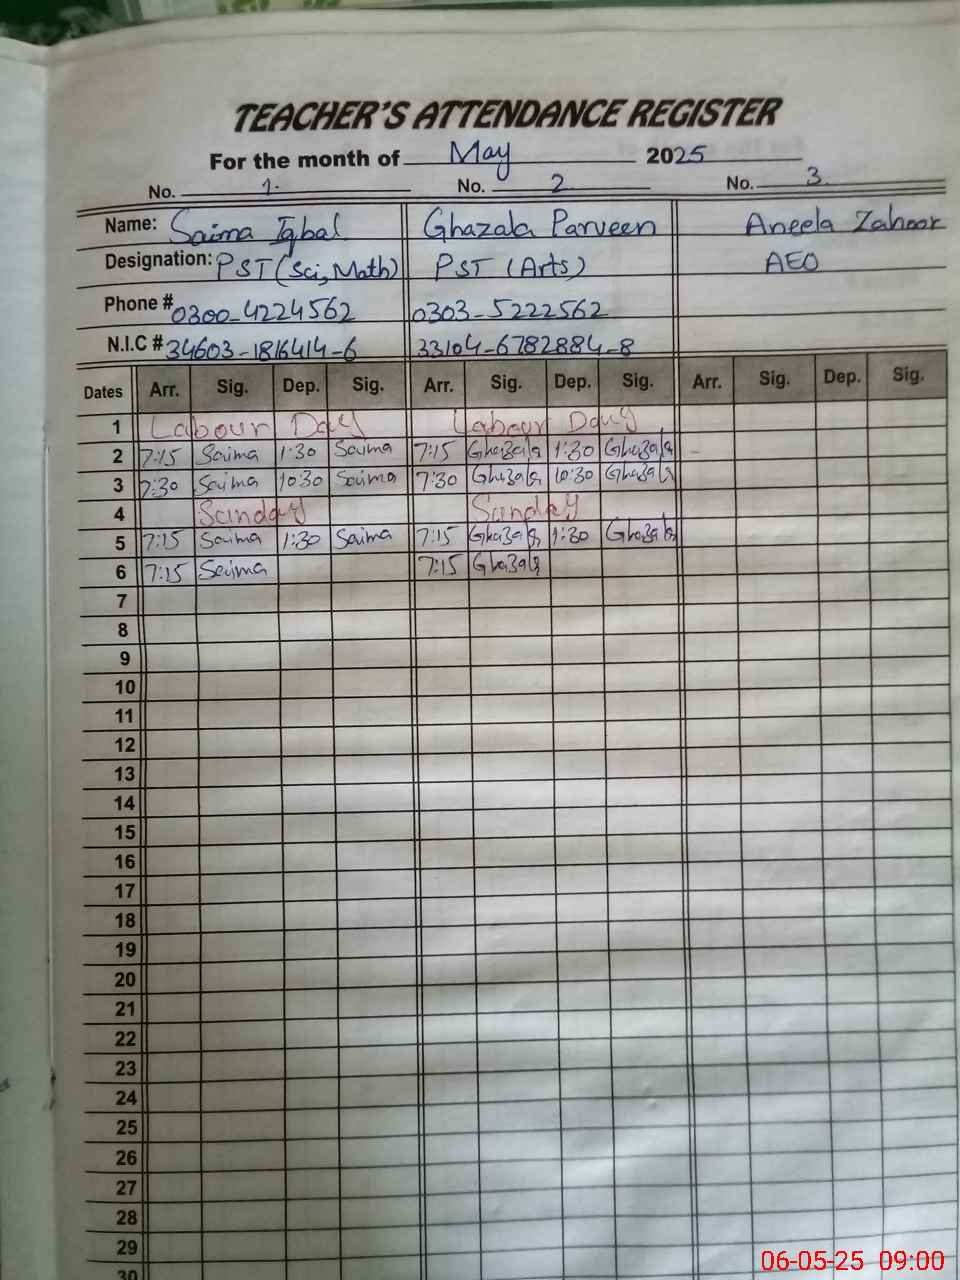 TEACHER'S ATTENDANCE REGISTER
For the month of May 2025
No. 1. No. 2 No. 3.
Name: Saima Iqbal Ghazala Parveen Aneela Zahoor
Designation: PST (Sci, Math) PST (Arts) AEO
Phone # 0300-4224562 0303-5222562
N.I.C # 34603-1816414-6 33104-6782884-8
Dates Arr. Sig. Dep. Sig. Arr. Sig. Dep. Sig. Arr. Sig. Dep. Sig.
1 Labour Day Labour Day
2 7:15 Saima 1:30 Saima 7:15 Ghazala 1:30 Ghazala
3 7:30 Saima 10:30 Saima 7:30 Ghazala 10:30 Ghazala
4 Sunday Sunday
5 7:15 Saima 1:30 Saima 7:15 Ghazala 1:30 Ghazala
6 7:15 Saima 7:15 Ghazala
7
8
9
10
11
12
13
14
15
16
17
18
19
20
21
22
23
24
25
26
27
28
29
30
06-05-25 09:00